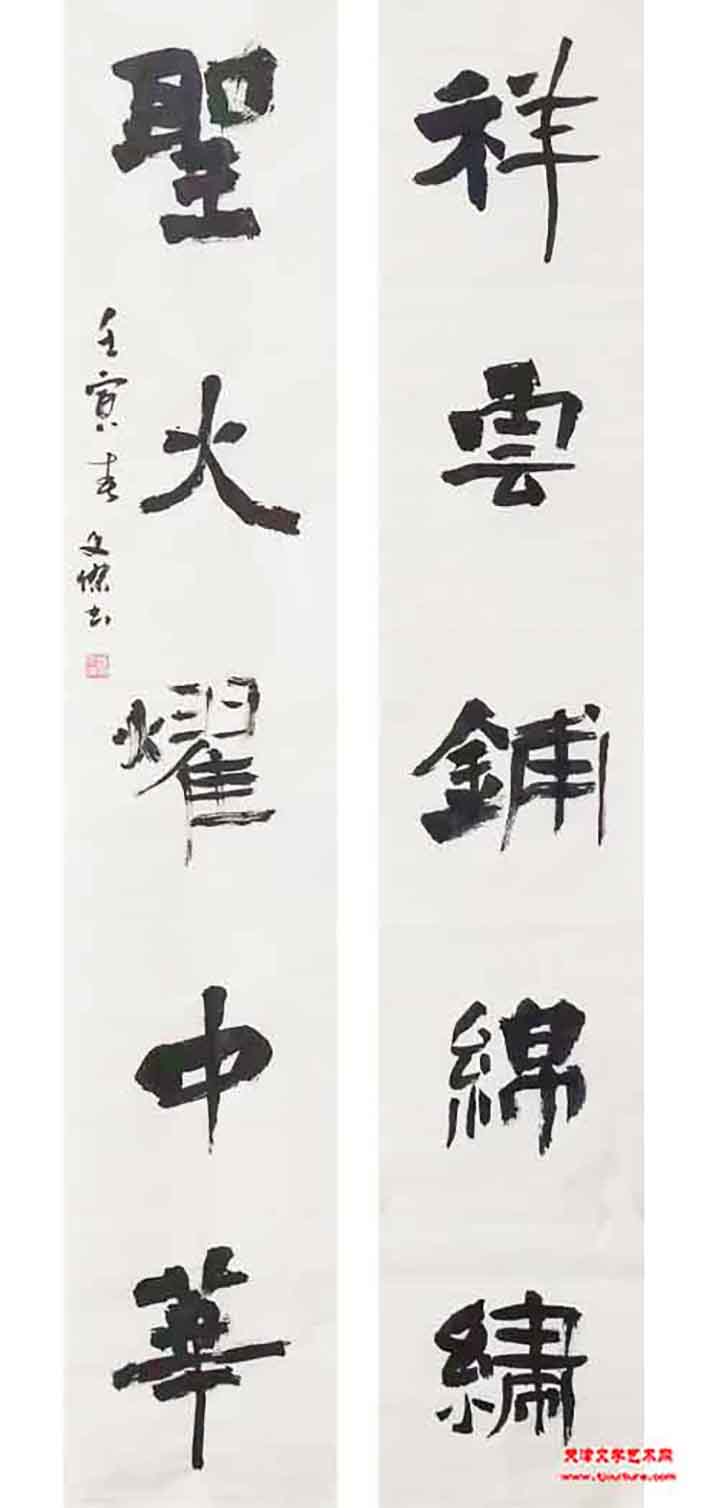 祥雲鋪綿繡
聖火耀中華
壬寅春文傑书
天津文学艺术网
www.tjculture.com